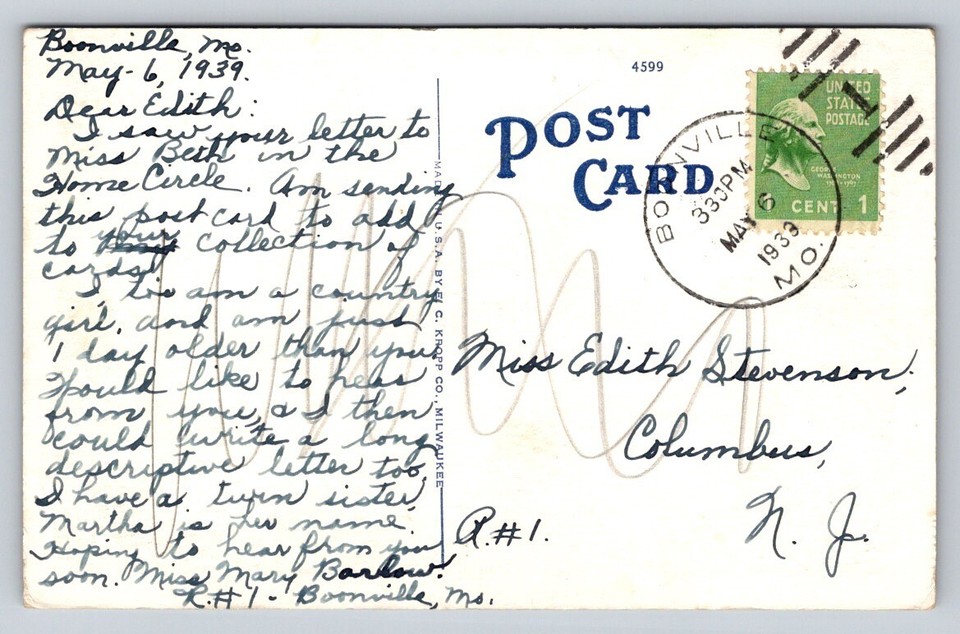 Boonville, Mo.
May - 6, 1939.
Dear Edith:
I saw your letter to
Miss Beth in the
Home Circle. Am sending
this post card to add
to your collection of
cards!
I, too am a country
girl, and am just
1 day older than you.
Would like to hear
from you, & I then
could write a long
descriptive letter too,
I have a twin sister,
Martha is her name.
Hoping to hear from you
soon. Miss Mary Barlow.
R.#1 - Boonville, Mo.
MADE IN U.S.A. BY E. C. KROPP CO., MILWAUKEE
4599
POST
CARD
BOONVILLE
330PM
MAY 6
1939
MO.
UNITED
STATES
POSTAGE
GEORGE
WASHINGTON
CENT 1
Miss Edith Stevenson,
Columbus,
R.#1.
N. J.